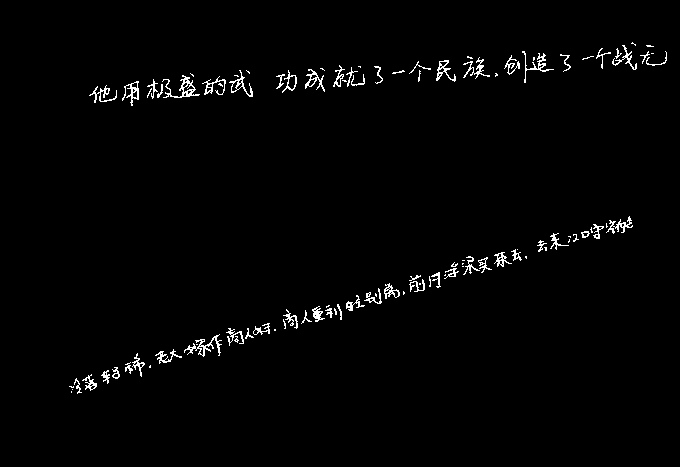 他用极盛的武 功成就了一个民族,创造了一个战无
冷落车马稀,老大嫁作商人妇,商人重利轻别离,前月浮梁买茶去,去来江口守空船